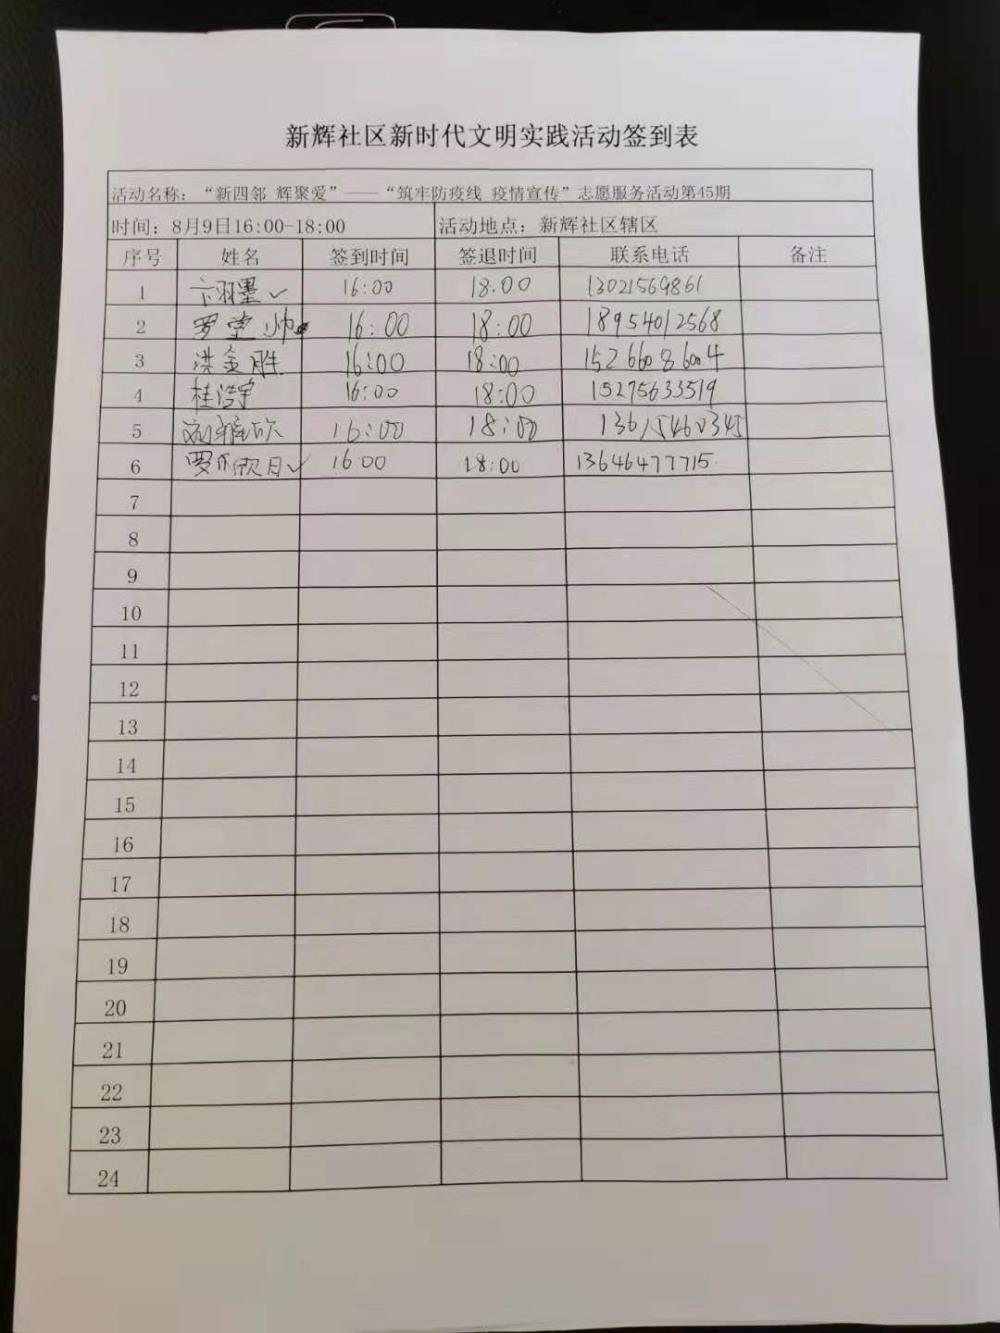 新辉社区新时代文明实践活动签到表
活动名称：“新四邻 辉聚爱”——“筑牢防疫线 疫情宣传”志愿服务活动第45期
时间：8月9日16:00-18:00 活动地点：新辉社区辖区
序号 姓名 签到时间 签退时间 联系电话 备注
1 卞羽墨✓ 16:00 18.00 13021569861
2 罗堂帅 16:00 18:00 18954012568
3 洪金胜 16:00 18:00 15266086004
4 桂浩宇 16:00 18:00 15275633519
5 16:00 18:00
6 16:00 18:00 13646477715
7
8
9
10
11
12
13
14
15
16
17
18
19
20
21
22
23
24